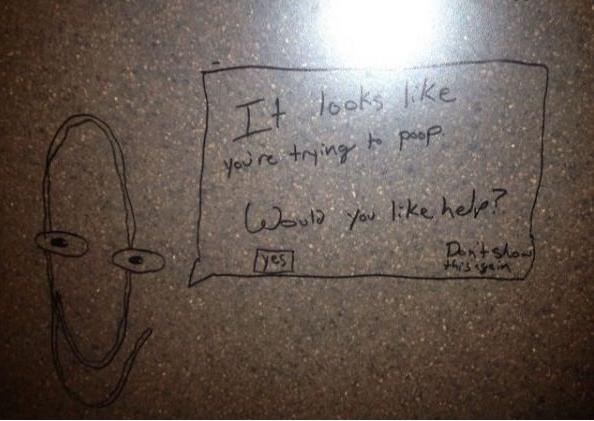 It looks like
you're trying to poop.
Would you like help?
yes
Don't show
this again